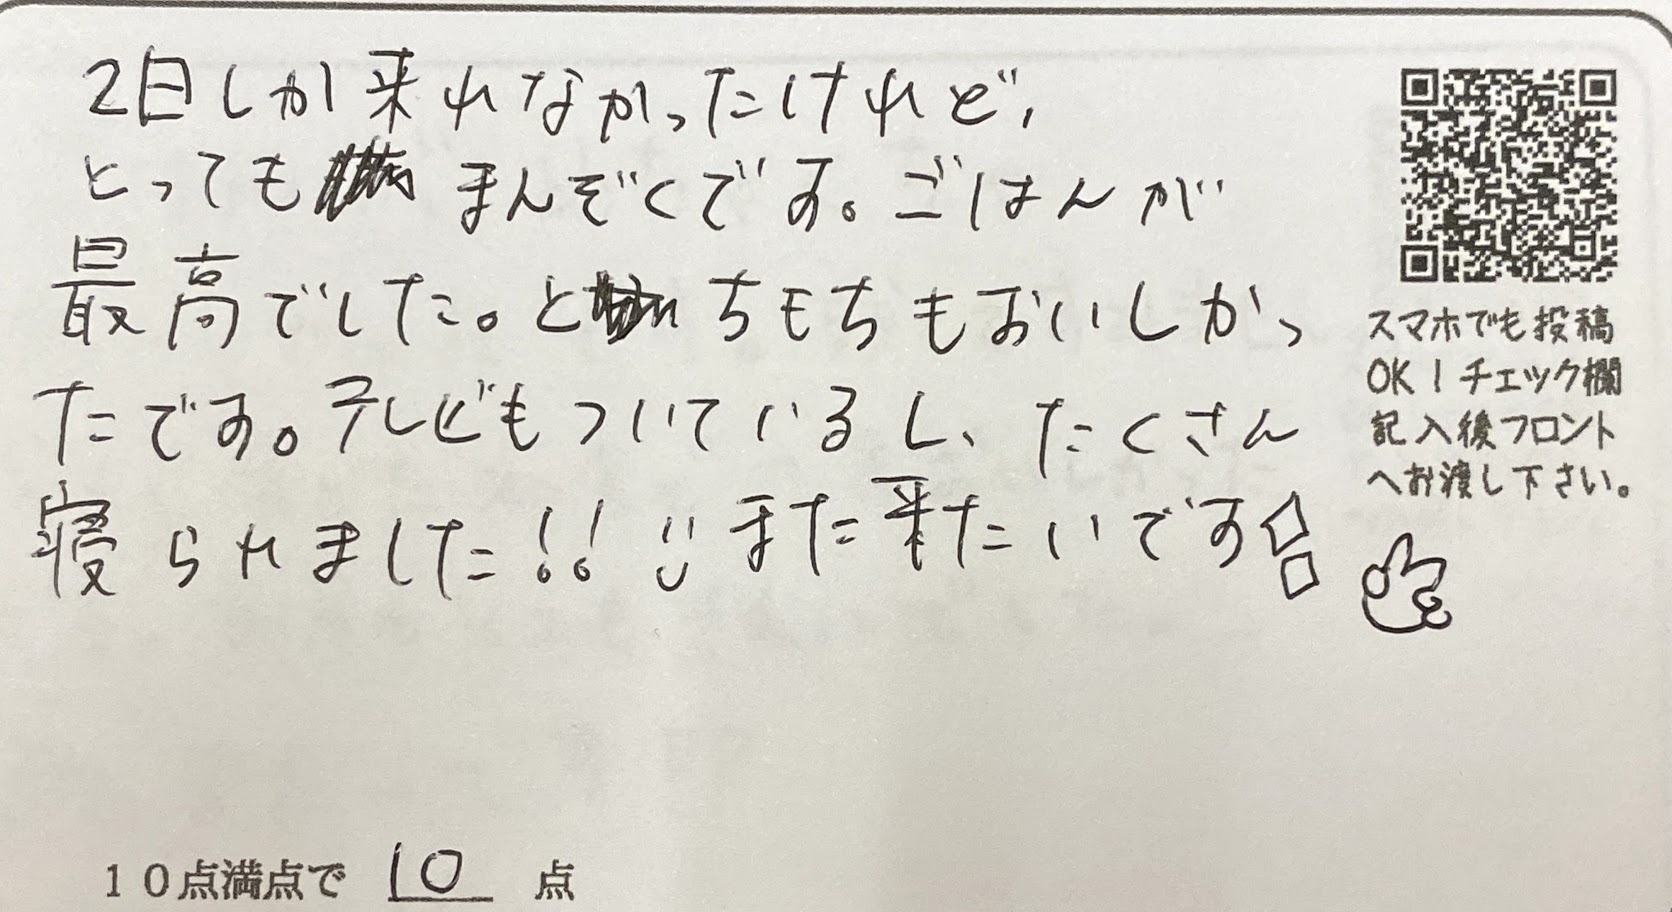 2日しか来れなかったけれど、
とっても まんぞくです。ごはんが
最高でした。と ちもちもおいしかっ
たです。テレビもついているし、たくさん
寝られました!! また来たいです
スマホでも投稿
OK!チェック欄
記入後フロント
へお渡し下さい。
10点満点で 10 点